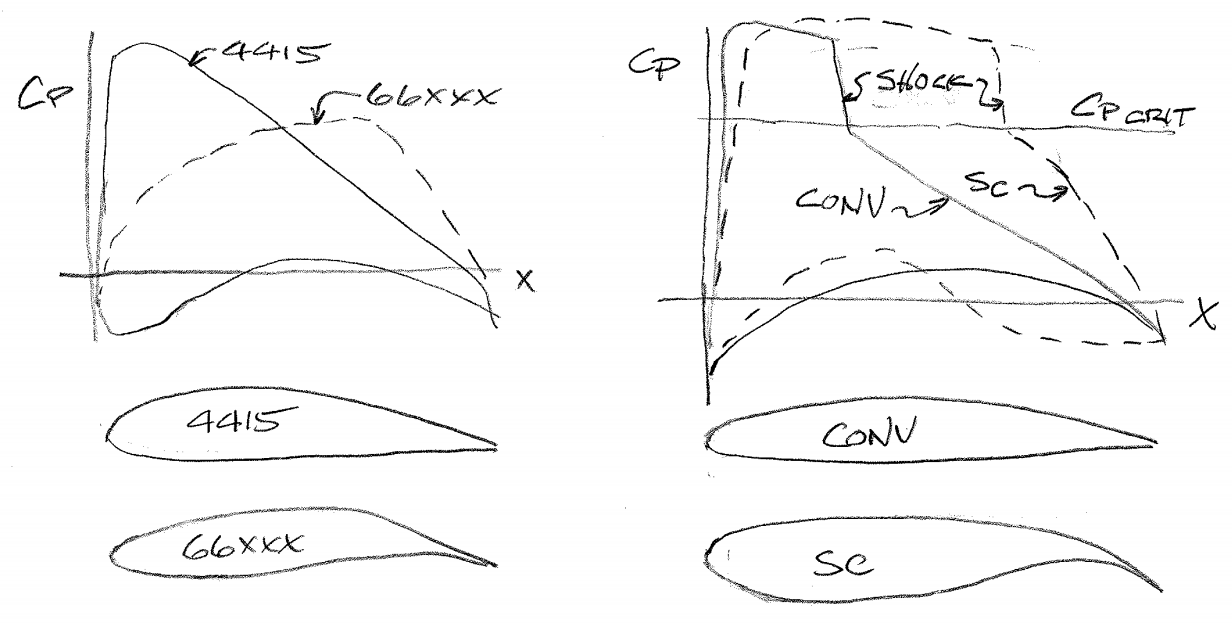 Cp
4415
66XXX
X
4415
66XXX
Cp
SHOCK
Cp CRIT
CONV
SC
X
CONV
SC